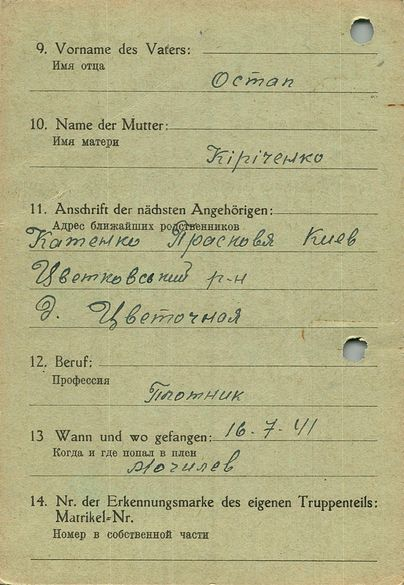 9. Vorname des Vaters:
Имя отца
Остап
10. Name der Mutter:
Имя матери
Кіріченко
11. Anschrift der nächsten Angehörigen:
Адрес ближайших родственников
Катенко Прасковя Киев
Цветковський р-н
д. Цветочная
12. Beruf:
Профессия
Плотник
13 Wann und wo gefangen: 16.7.41
Когда и где попал в плен
Могилев
14. Nr. der Erkennungsmarke des eigenen Truppenteils:
Matrikel-Nr.
Номер в собственной части